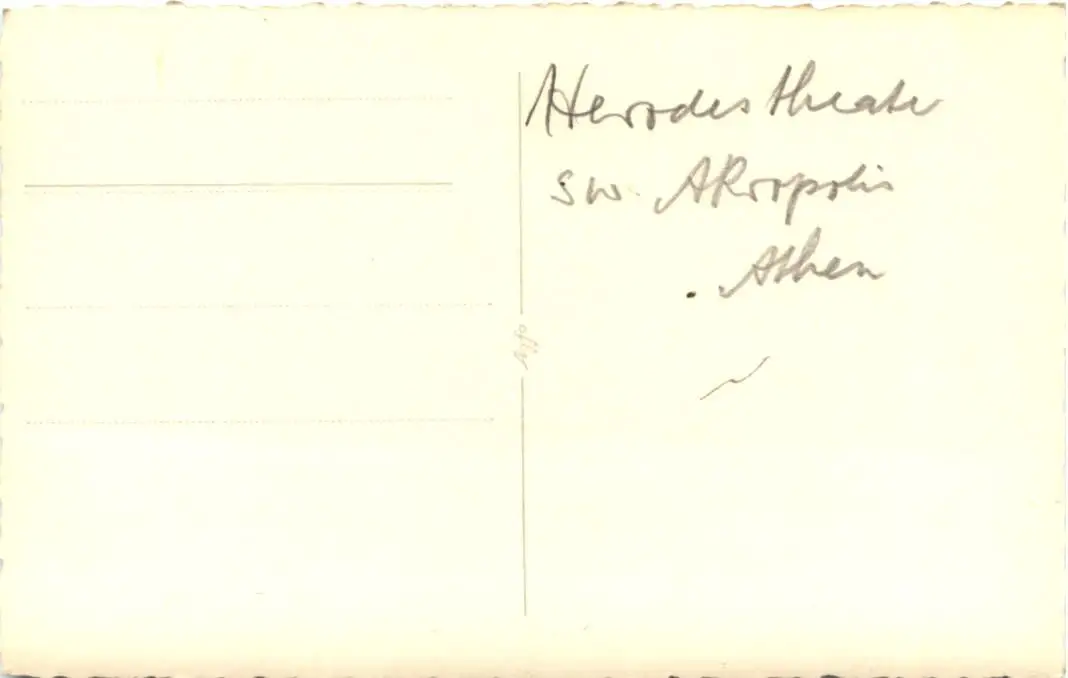 Herodestheater
SW. Akropolis
Athen